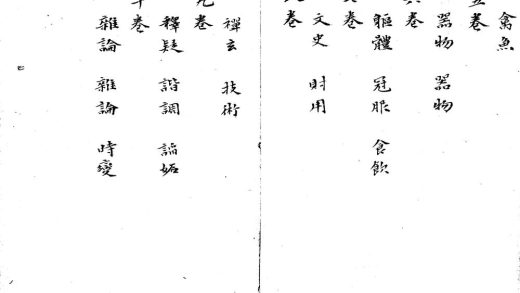 禽魚
五卷
器物 器物
六卷
軀體 冠服 食飲
卷
文史 財用
卷
禪玄 技術
九卷
釋疑 諧謔 謟妬
十卷
雜論 雜論 時變